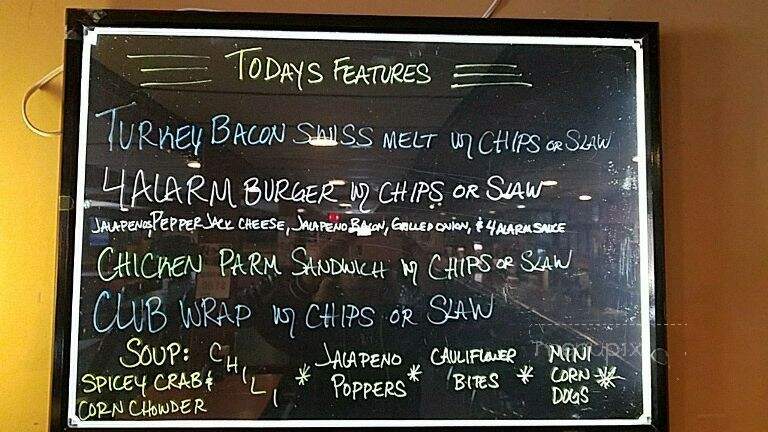 TODAYS FEATURES
TURKEY BACON SWISS MELT W/ CHIPS OR SLAW
4 ALARM BURGER W/ CHIPS OR SLAW
JALAPENOS, PEPPER JACK CHEESE, JALAPENO BACON, GRILLED ONION, & 4 ALARM SAUCE
CHICKEN PARM SANDWICH W/ CHIPS OR SLAW
CLUB WRAP W/ CHIPS OR SLAW
SOUP: CHILI
SPICEY CRAB &
CORN CHOWDER
* JALAPENO
POPPERS *
CAULIFLOWER
BITES *
MINI
CORN
DOGS *
menupix